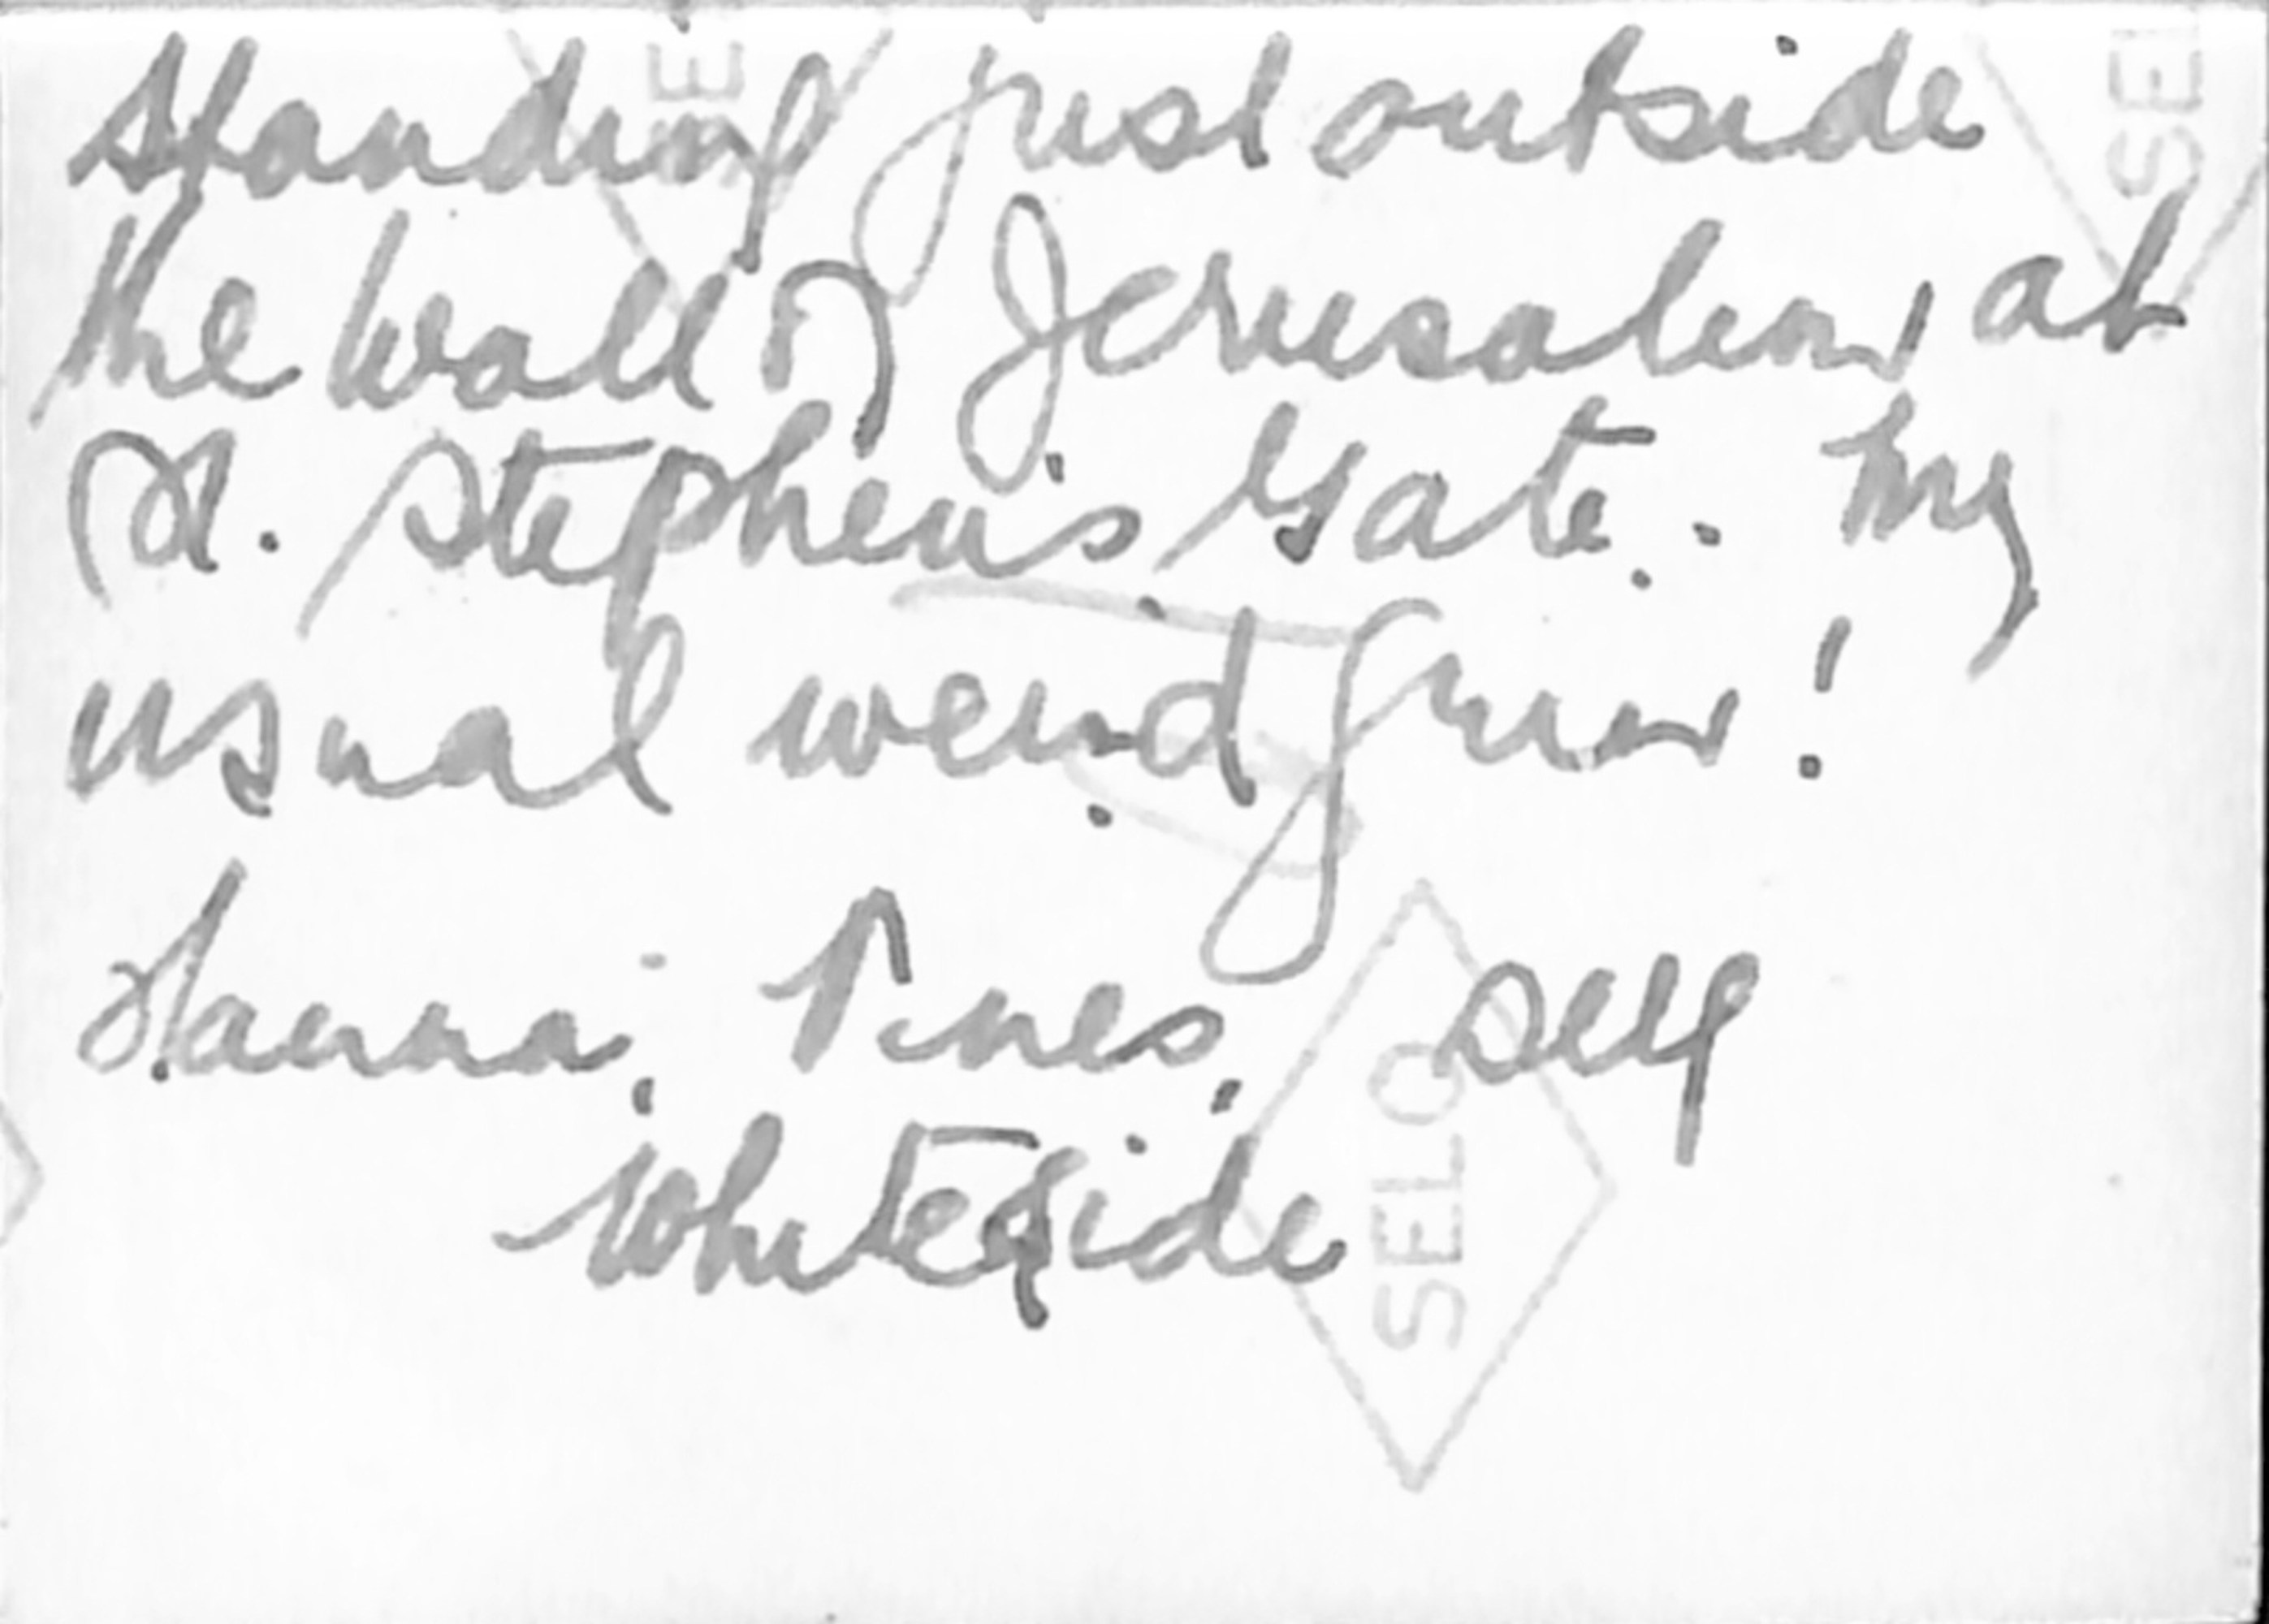 standing just outside
the wall of Jerusalem at
St. Stephen's Gate. My
usual weird grin!
Hanna, Pines, self
Whiteside
SELO
SE
SEL